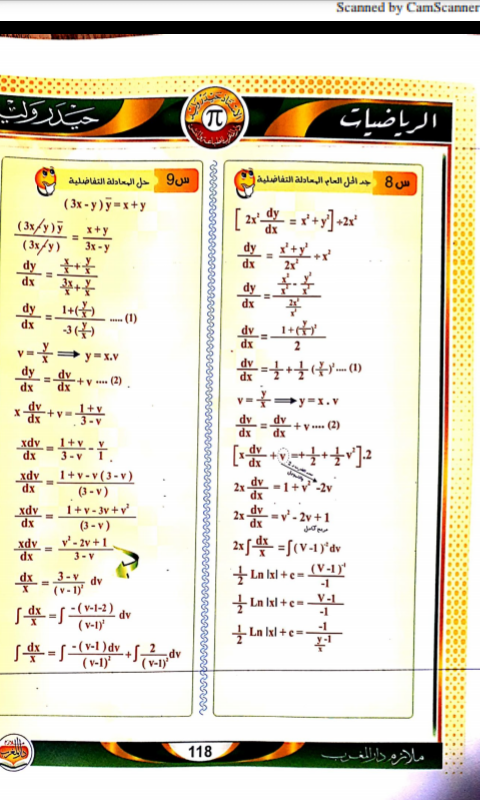 Scanned by CamScanner
الرياضيات
π
حيدر وليد
س8 جد الحل العام المعادلة التفاضلية
[2x² dy/dx = x² + y²] ÷2x²
dy/dx = (x² + y²)/2x² ÷ x²
dy/dx = (x²/x² + y²/x²)/(2x²/x²)
dv/dx = (1 + (y/x)²)/2
dv/dx = 1/2 + 1/2 (y/x)² .... (1)
v = y/x ⟹ y = x . v
dv/dx = dv/dx + v .... (2)
[x dv/dx + v = + 1/2 + 1/2 v²].2
2x dv/dx = 1 + v² -2v
2x dv/dx = v² - 2v + 1
مربع كامل
2x ∫ dx/x = ∫ (V -1)⁻² dv
1/2 Ln |x| + c = (V -1)⁻¹/-1
1/2 Ln |x| + c = V -1/-1
1/2 Ln |x| + c = -1/(y -1/x)
س9 حل المعادلة التفاضلية
(3x - y) ȳ = x + y
(3x/y) ȳ/(3x/y) = x + y/3x - y
dy/dx = (x/x + y/x)/(3x/x + y/x)
dy/dx = 1+(y/x)/-3 (y/x) ..... (1)
v = y/x ⟹ y = x.v
dy/dx = dv/dx + v .... (2)
x dv/dx + v = 1 + v/3 - v
xdv/dx = 1 + v/3 - v - v/1
xdv/dx = 1 + v - v (3 - v)/(3 - v)
xdv/dx = 1 + v - 3v + v²/(3 - v)
xdv/dx = v² - 2v + 1/3 - v
dx/x = 3 - v/(v - 1)² dv
∫ dx/x = ∫ -( v-1-2)/(v-1)² dv
∫ dx/x = ∫ -( v-1) dv/(v-1)² + ∫ 2/(v-1)² dv
118
ملازم دار المغرب